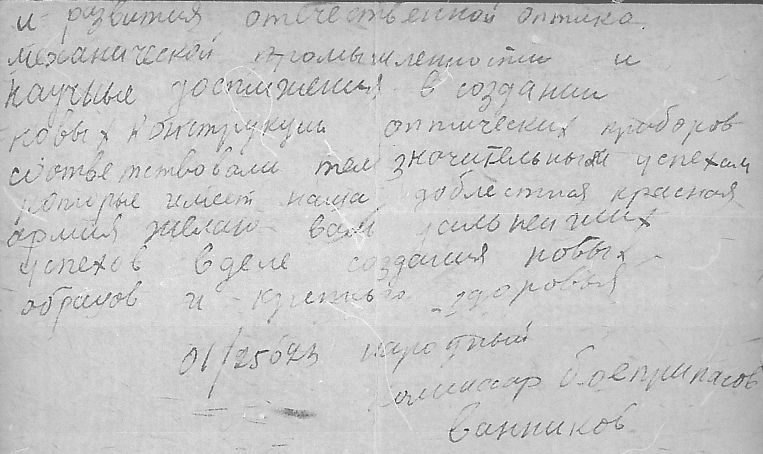 и развития отечественной оптико
механической промышленности и
научные достижения в создании
новых конструкции оптических приборов
соответствовали тем значительным успехам
которые имеет наша доблестная красная
армия желаю вам дальнейших
успехов в деле создания новых
образцов и крепкого здоровья
народный
комиссар боеприпасов
Ванников